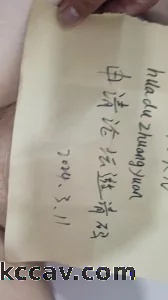 huladuzhuangyuan
申请论坛邀请码
2024.3.11
kccav.com